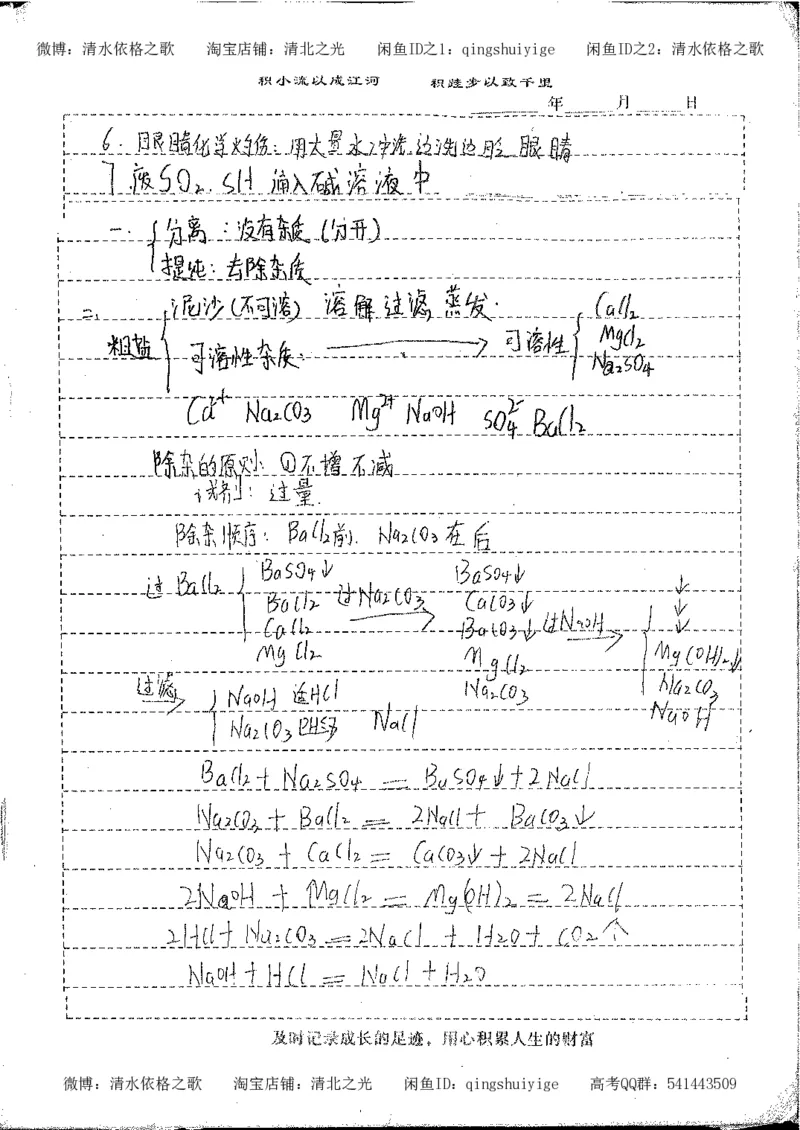 微博：清水依格之歌 淘宝店铺：清北之光 闲鱼ID之1：qingshuiyige 闲鱼ID之2：清水依格之歌
积小流以成江河 积跬步以致千里
年 月 日
6. 眼睛化学灼伤：用大量水冲洗 边洗边眨眼睛
7 废SO₂. SH 通入碱溶液中
一. 分离：没有杂质(分开)
提纯：去除杂质
二. 粗盐 泥沙(不可溶) 溶解 过滤 蒸发.
可溶性杂质: → 可溶性 CaCl₂ MgCl₂ Na₂SO₄
Ca²⁺ Na₂CO₃ Mg²⁺ NaOH SO₄²⁻ BaCl₂
除杂的原则: ①不增不减
试剂: 过量.
除杂顺序: BaCl₂前. Na₂CO₃在后
过BaCl₂ BaSO₄↓ BaCl₂ CaCl₂ MgCl₂ 过Na₂CO₃ → BaSO₄↓ CaCO₃↓ BaCO₃↓ MgCl₂ Na₂CO₃ 过NaOH → ↓ ↓ ↓ Mg(OH)₂↓ Na₂CO₃ NaOH
过滤 → NaOH 适HCl
Na₂CO₃ NaCl
BaCl₂ + Na₂SO₄ = BaSO₄↓ + 2NaCl
Na₂CO₃ + BaCl₂ = 2NaCl + BaCO₃↓
Na₂CO₃ + CaCl₂ = CaCO₃↓ + 2NaCl
2NaOH + MgCl₂ = Mg(OH)₂ = 2NaCl
2HCl + Na₂CO₃ = 2NaCl + H₂O + CO₂↑
NaOH + HCl = NaCl + H₂O
及时记录成长的足迹，用心积累人生的财富
微博：清水依格之歌 淘宝店铺：清北之光 闲鱼ID：qingshuiyige 高考QQ群：541443509